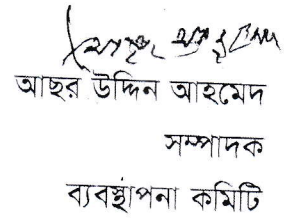 আছর উদ্দিন আহমেদ
সম্পাদক
ব্যবস্থাপনা কমিটি